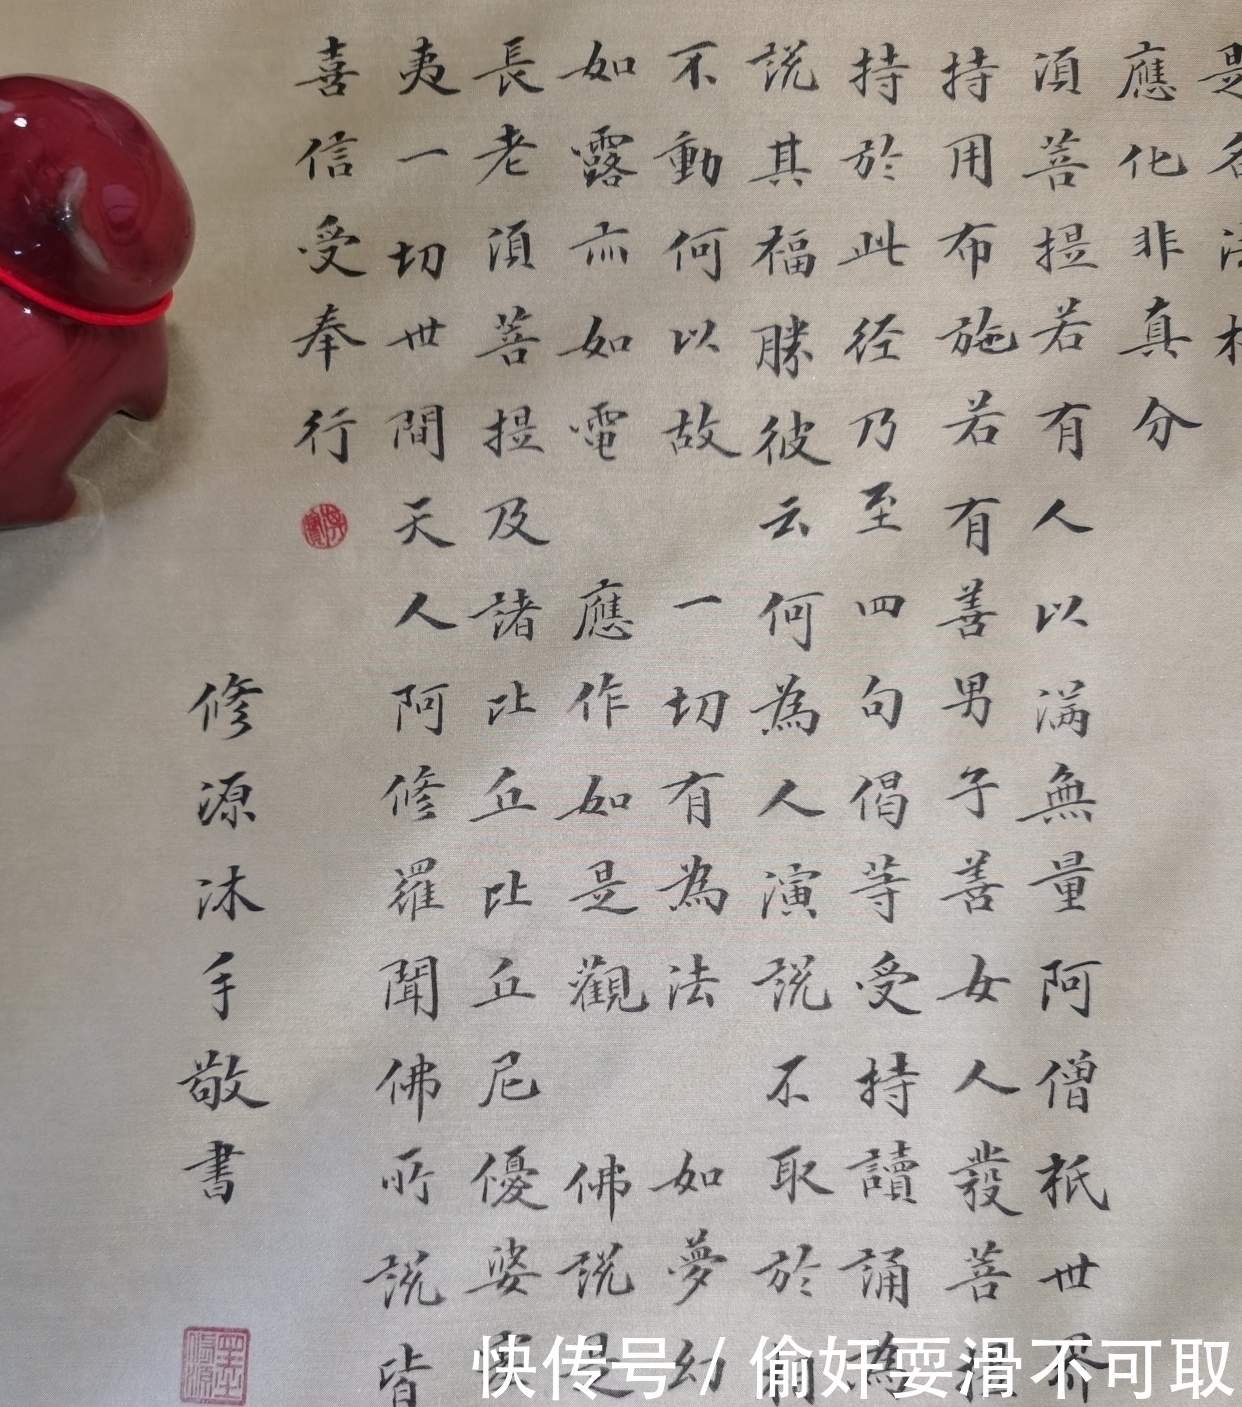 是名法相
應化非真分
湏菩提若有人以満無量阿僧祇世界
持用布施若有善男子善女人發菩提
持於此経乃至四句偈等受持讀誦為
説其福勝彼云何為人演説 不取於相
不動何以故 一切有為法 如夢幻
如露亦如電 應作如是觀 佛説是
長老湏菩提及諸比丘比丘尼優婆塞
夷一切世間天人阿修羅聞佛所説皆
喜信受奉行
修源沐手敬書
快传号/偷奸耍滑不可取